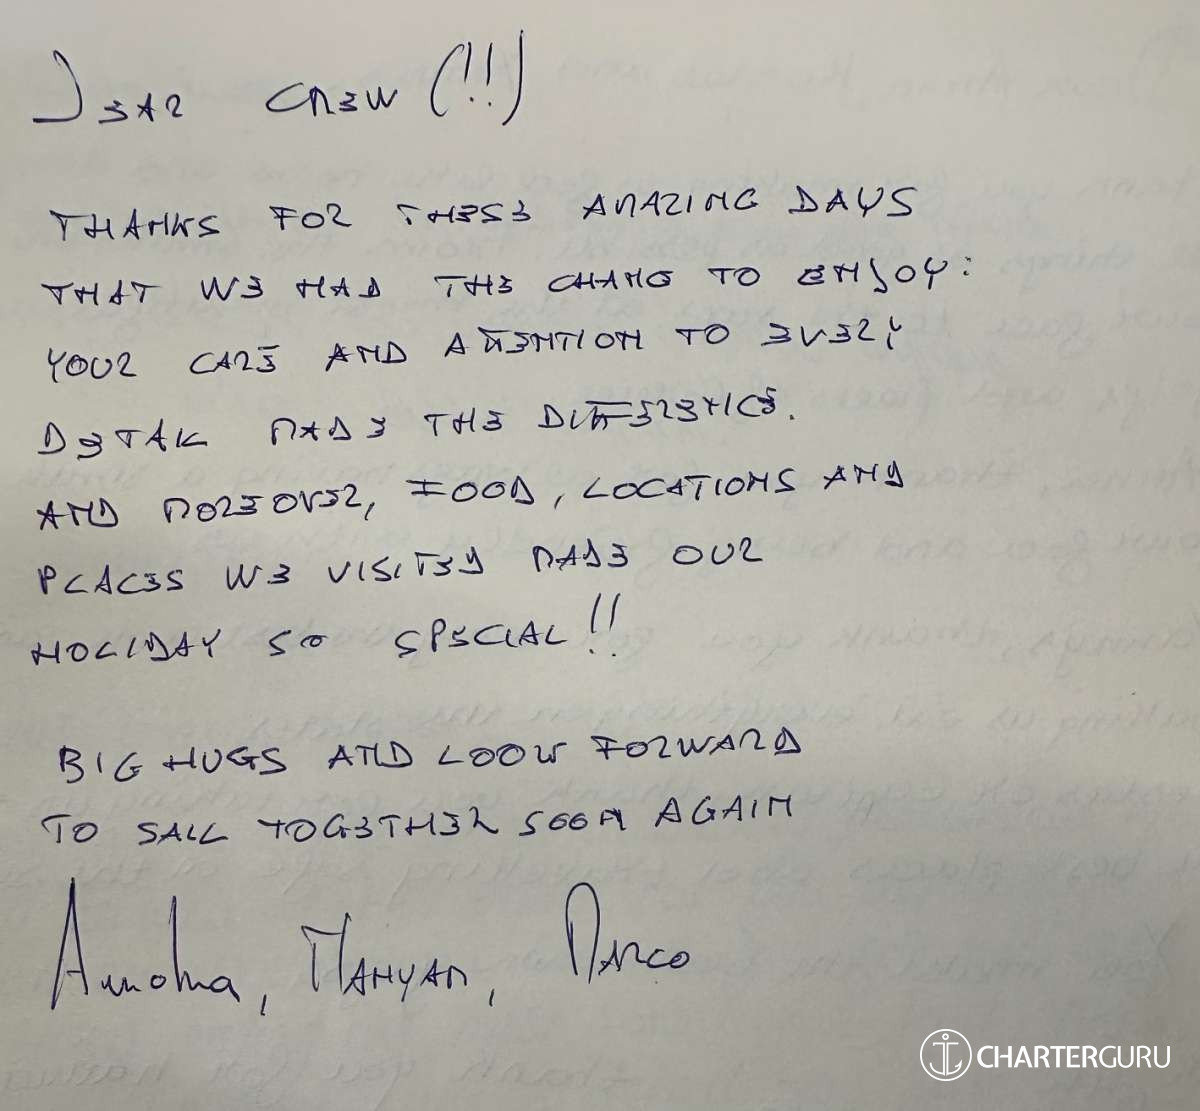 DEAR CREW (!!!)
THANKS FOR THESE AMAZING DAYS
THAT WE HAD THE CHANG TO ENJOY:
YOUR CARE AND ATTENTION TO EVERY
DETAIL MADE THE DIFFERENCE.
AND MOREOVER, FOOD, LOCATIONS AND
PLACES WE VISITED MADE OUR
HOLIDAY SO SPECIAL!!
BIG HUGS AND LOOK FORWARD
TO SAIL TOGETHER SOON AGAIN
MARCO
CHARTERGURU